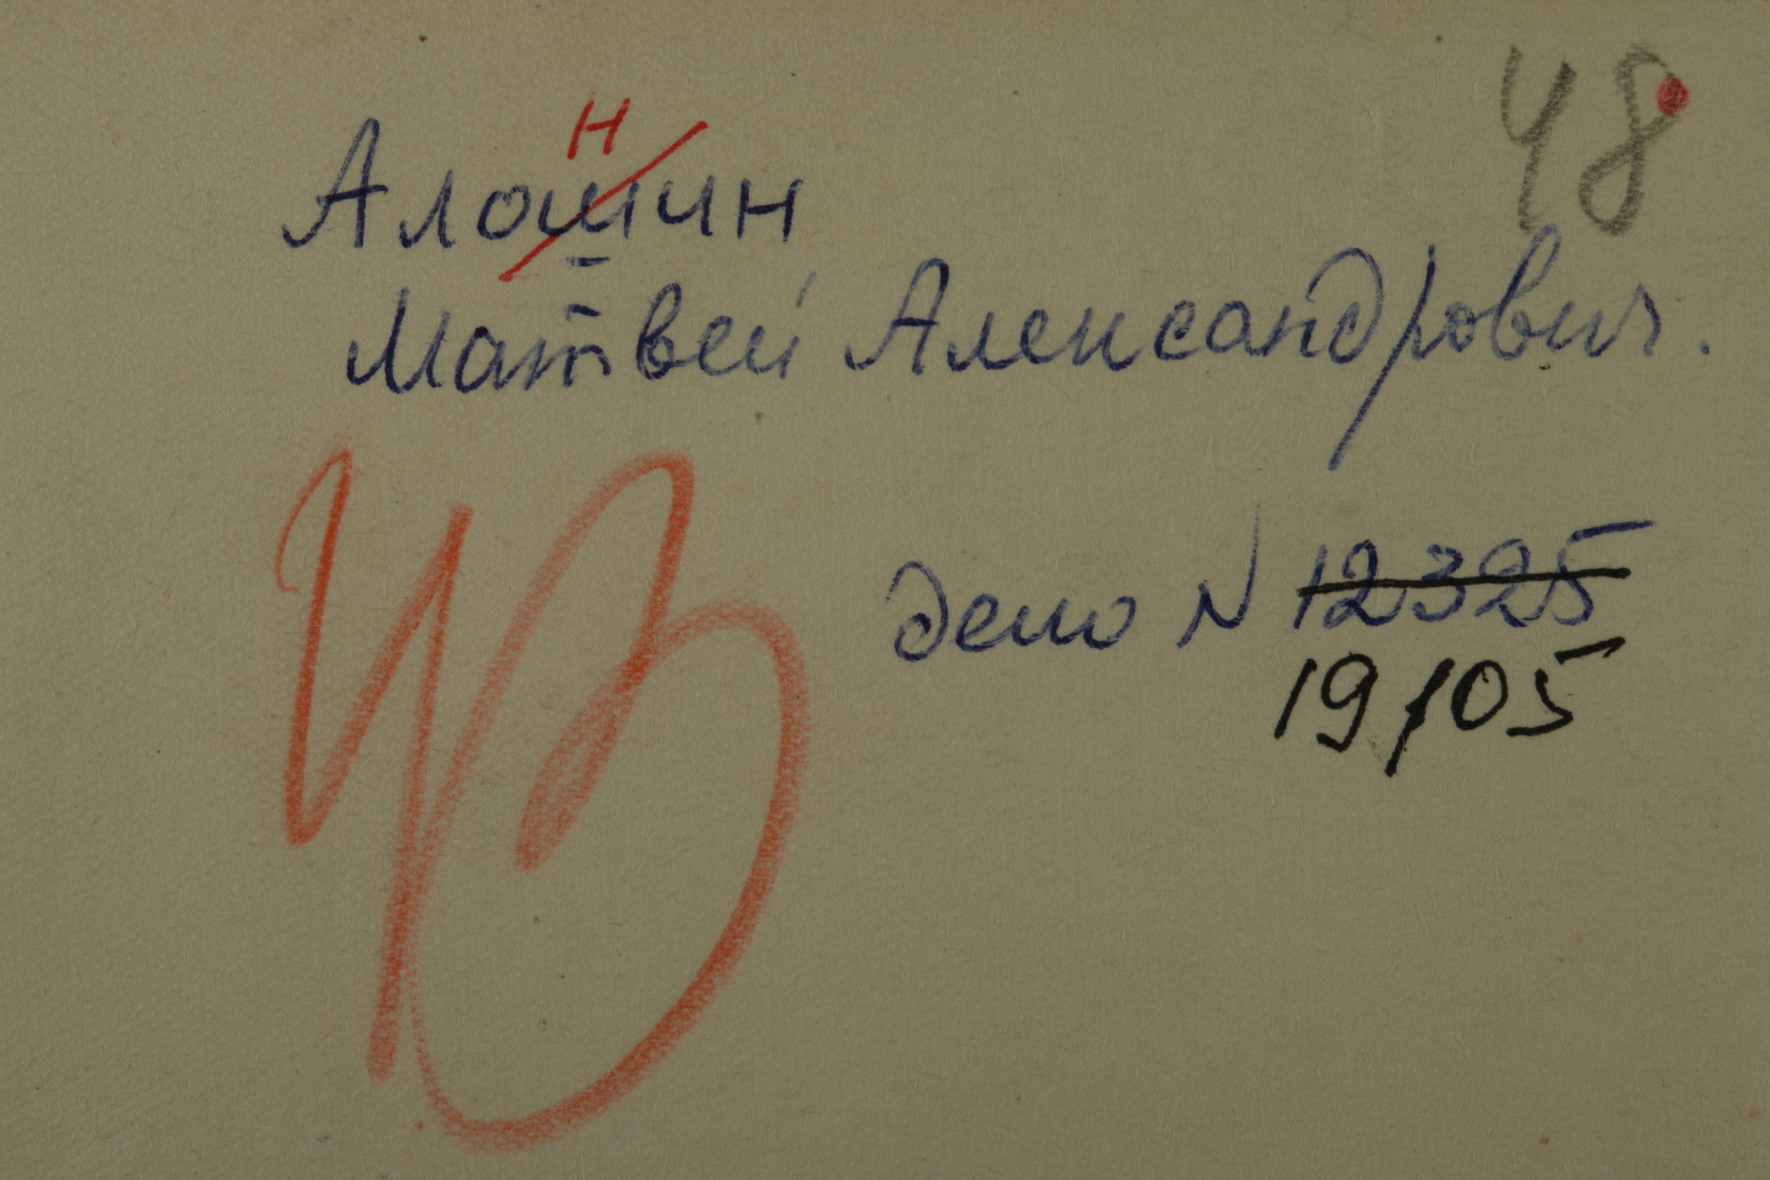 48
н
Алошин
Матвей Александрович.
дело N 12325
19105